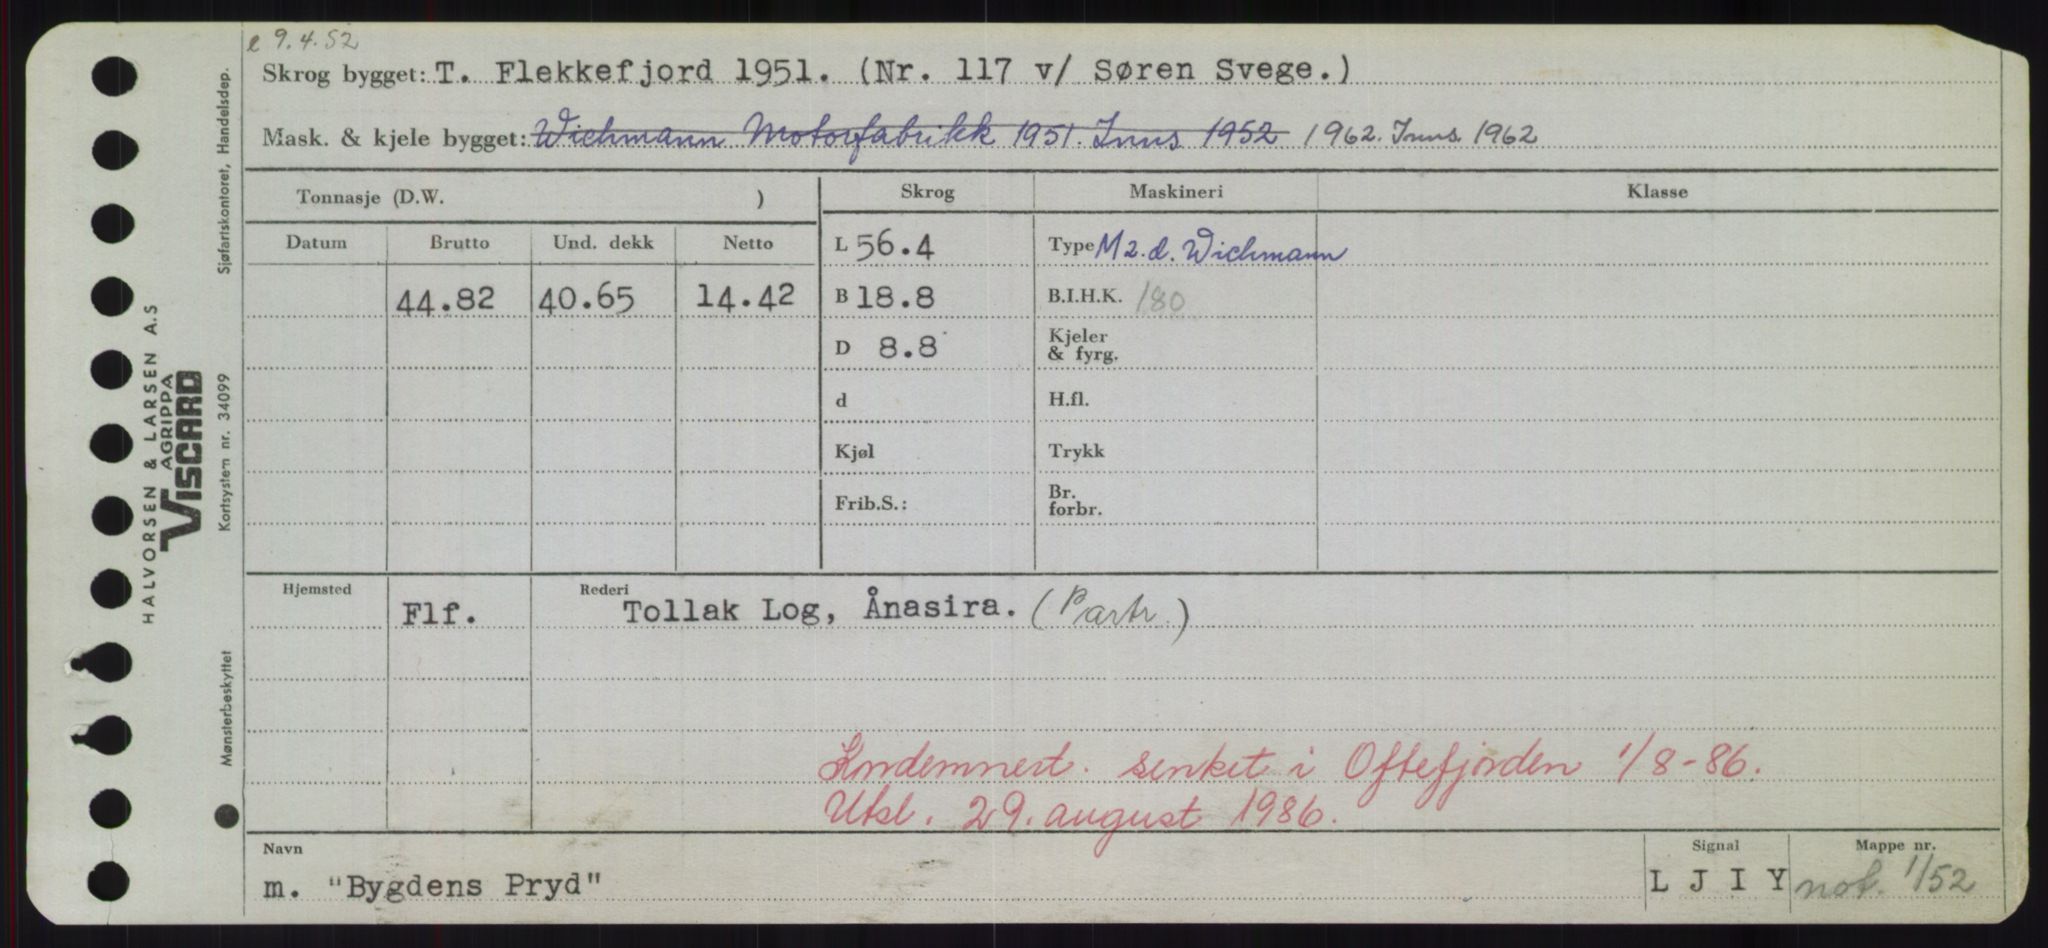 e 9.4.52
Skrog bygget: T. Flekkefjord 1951. (Nr. 117 v/ Søren Svege.)
Mask. & kjele bygget: Wichmann Motorfabrikk 1951. Inns 1952 1962. Inns. 1962
Tonnasje (D.W. )
Skrog Maskineri Klasse
Datum Brutto Und. dekk Netto
L 56.4 Type M 2.d. Wichmann
44.82 40.65 14.42 B 18.8 B.I.H.K. 180
D 8.8 Kjeler & fyrg.
d H.fl.
Kjøl Trykk
Frib.S.: Br. forbr.
Hjemsted Rederi
Flf. Tollak Log, Ånasira. (Partr.)
Kndemnert. senket i Oftefjorden 1/8-86.
Utsl. 29. august 1986.
Navn Signal Mappe nr.
m. "Bygdens Pryd" L J I Y not. 1/52
HALVORSEN & LARSEN A.S
AGRIPPA
VISCARD
Mønsterbeskyttet Kortsystem nr. 34099 Sjøfartskontoret, Handelsdep.